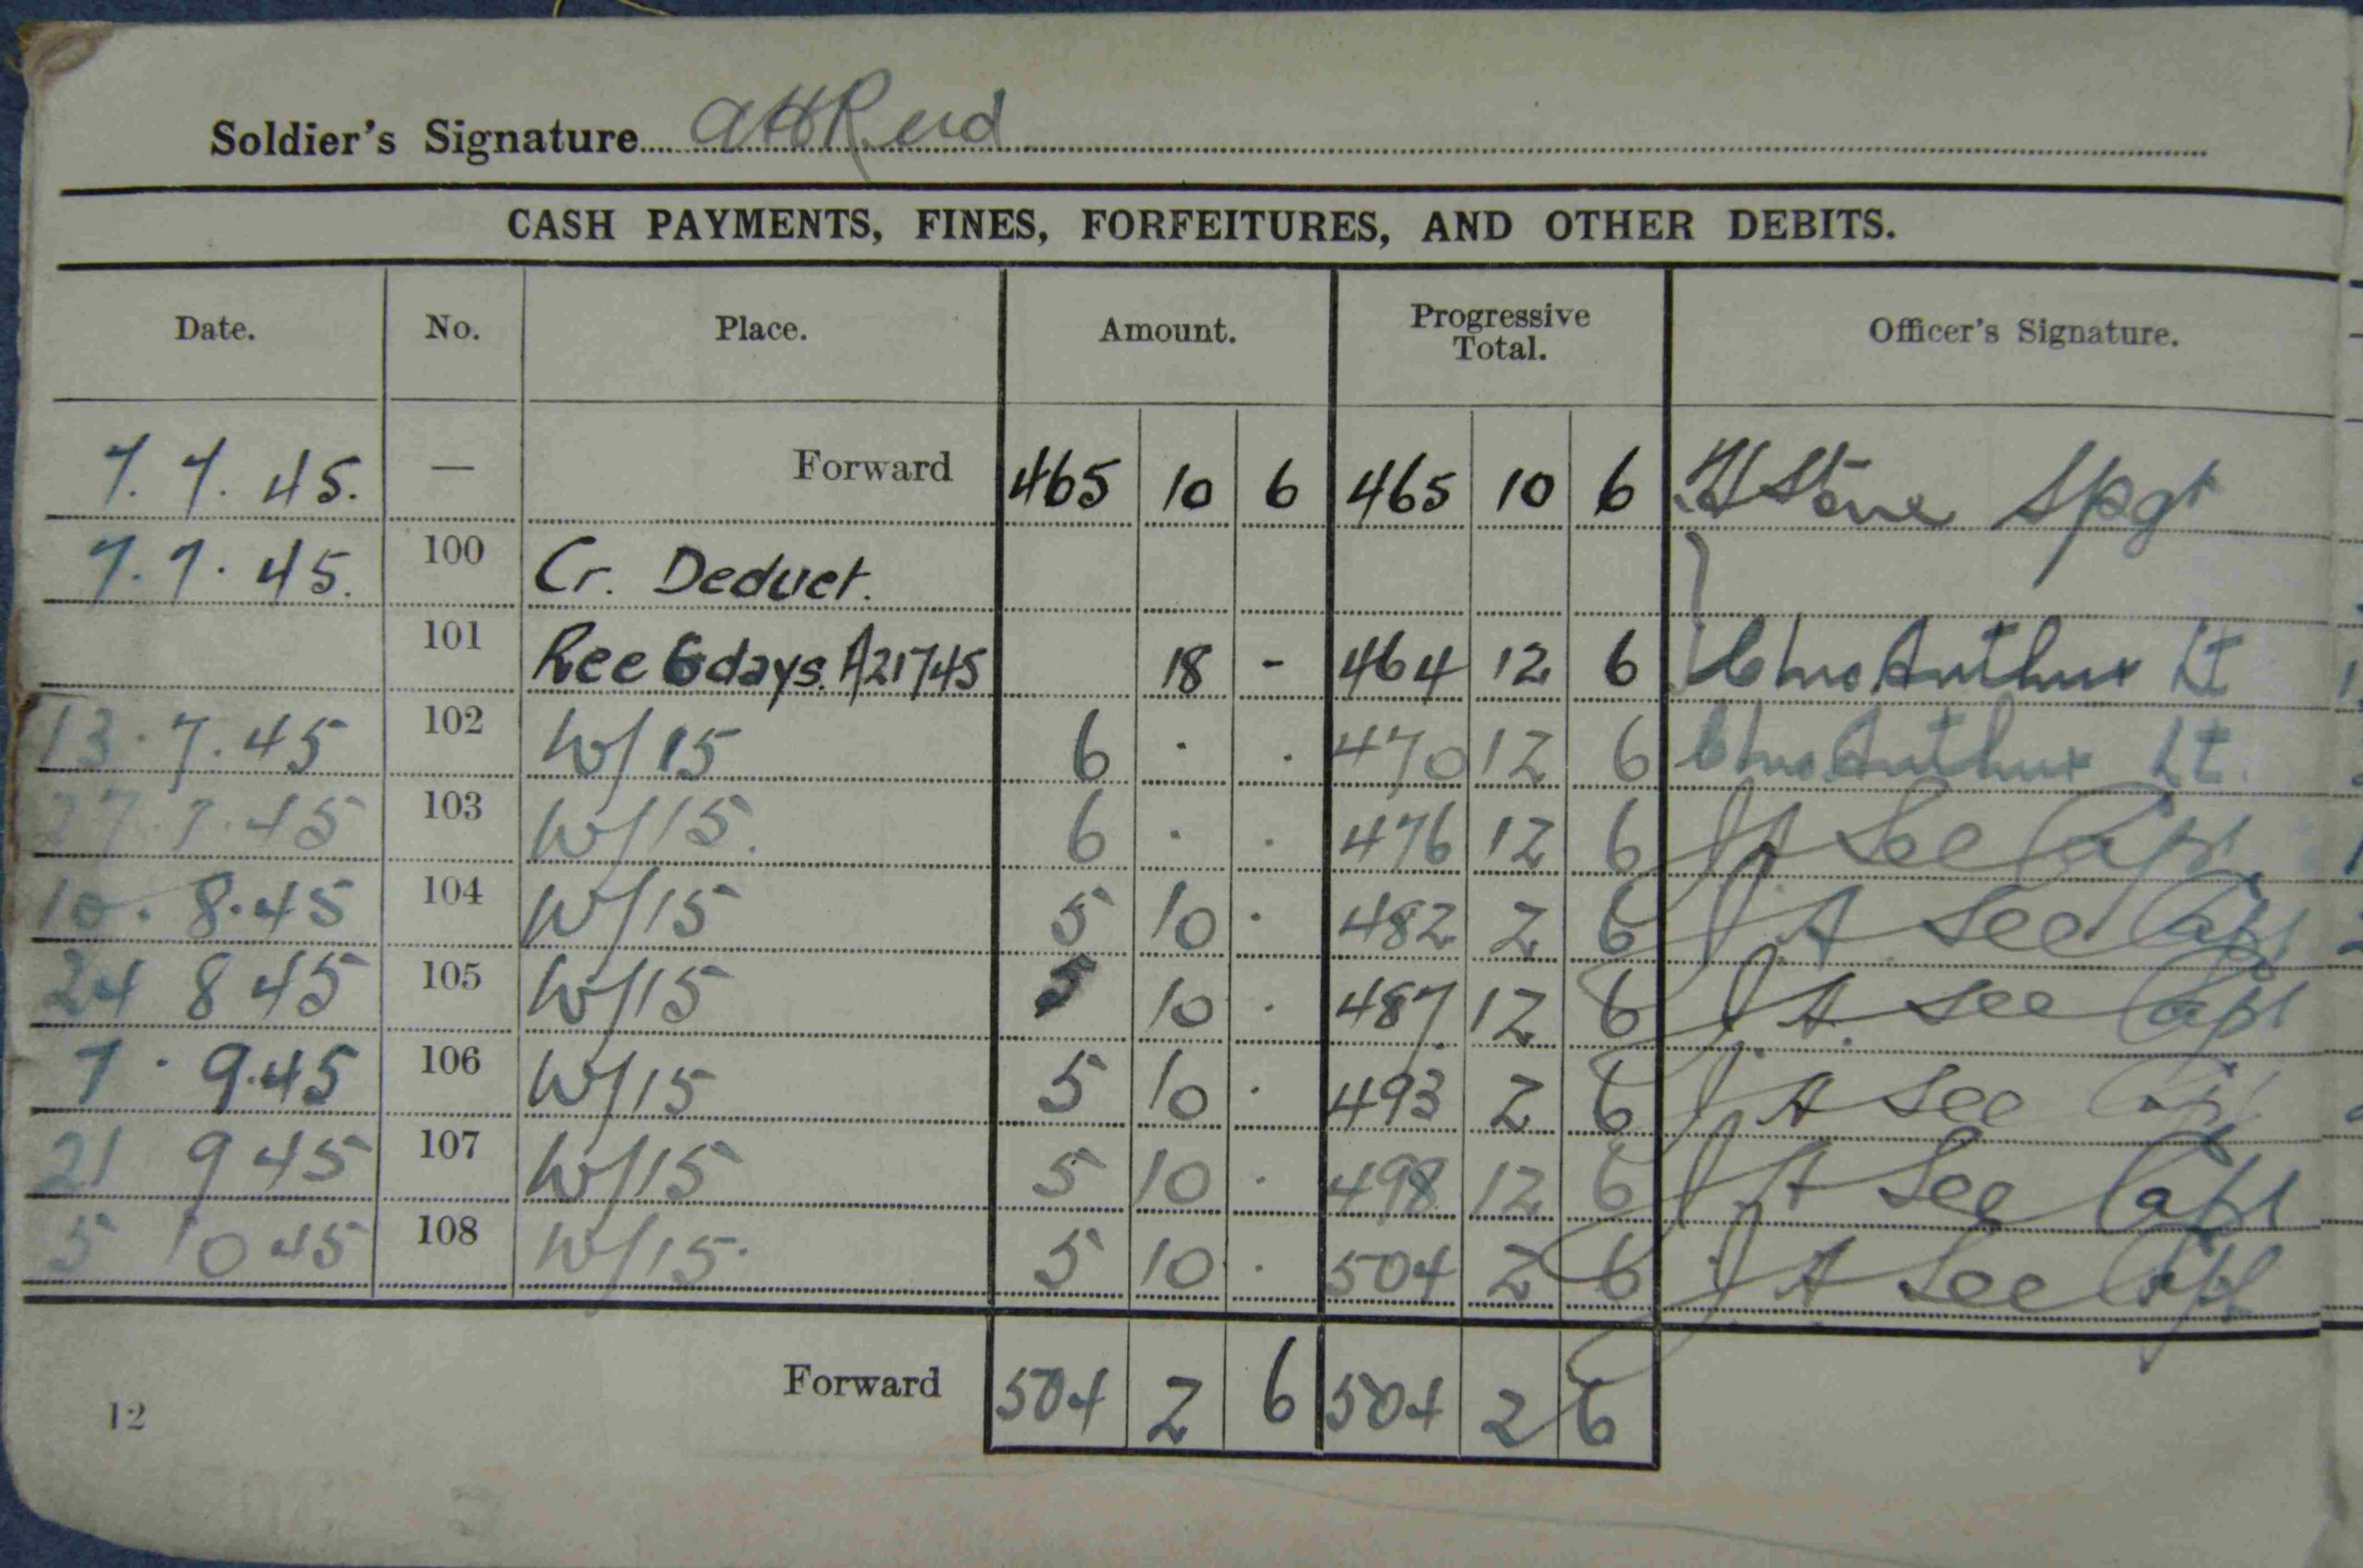 Soldier's Signature AHReid
CASH PAYMENTS, FINES, FORFEITURES, AND OTHER DEBITS.
Date. No. Place. Amount. Progressive Total. Officer's Signature.
7.7.45. — Forward 465 10 6 465 10 6 Stone
7.7.45. 100 Cr. Deduct.
101 Ree 6 days. A21745 18 - 464 12 6 McArthur Lt
13.7.45 102 W/15 6 . . 470 12 6 McArthur Lt.
27.7.45 103 W/15. 6 . . 476 12 6 J A See Capt
10.8.45 104 W/15 5 10 . 482 2 6 J A See Capt
24 8 45 105 W/15 5 10 . 487 12 6 J. A. See Capt
7.9.45 106 W/15 5 10 . 493 2 6 J A See Capt
21 9 45 107 W/15 5 10 . 498 12 6 J A See Capt
5 10 45 108 W/15. 5 10 . 504 2 6 J A See Capt
Forward 504 2 6 504 2 6
12